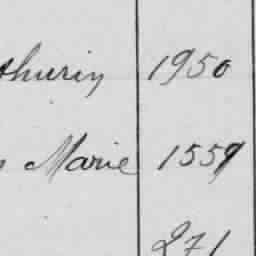 thurin 1950
s Marie 1559
271